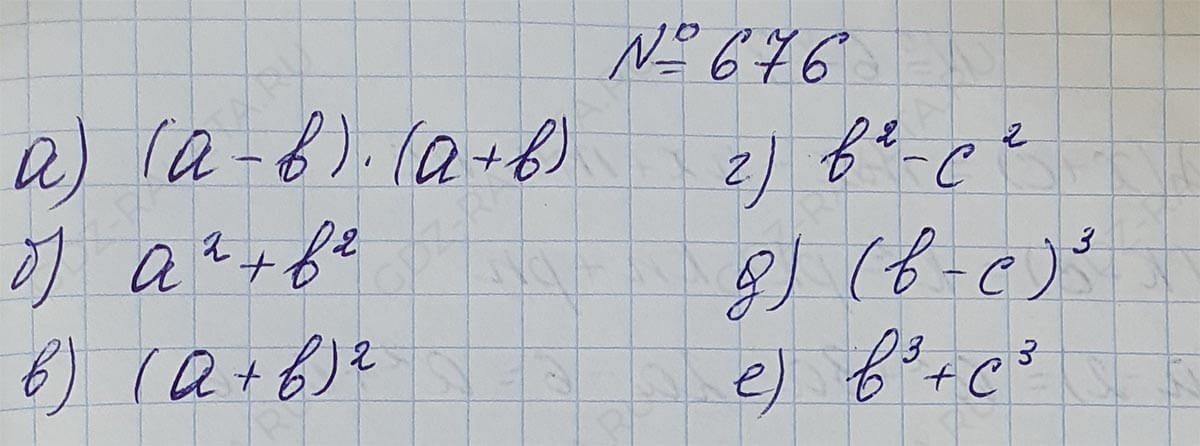 № 676
а) (a - b) · (a + b)
б) a² + b²
в) (a + b)²
г) b² - c²
д) (b - c)³
е) b³ + c³